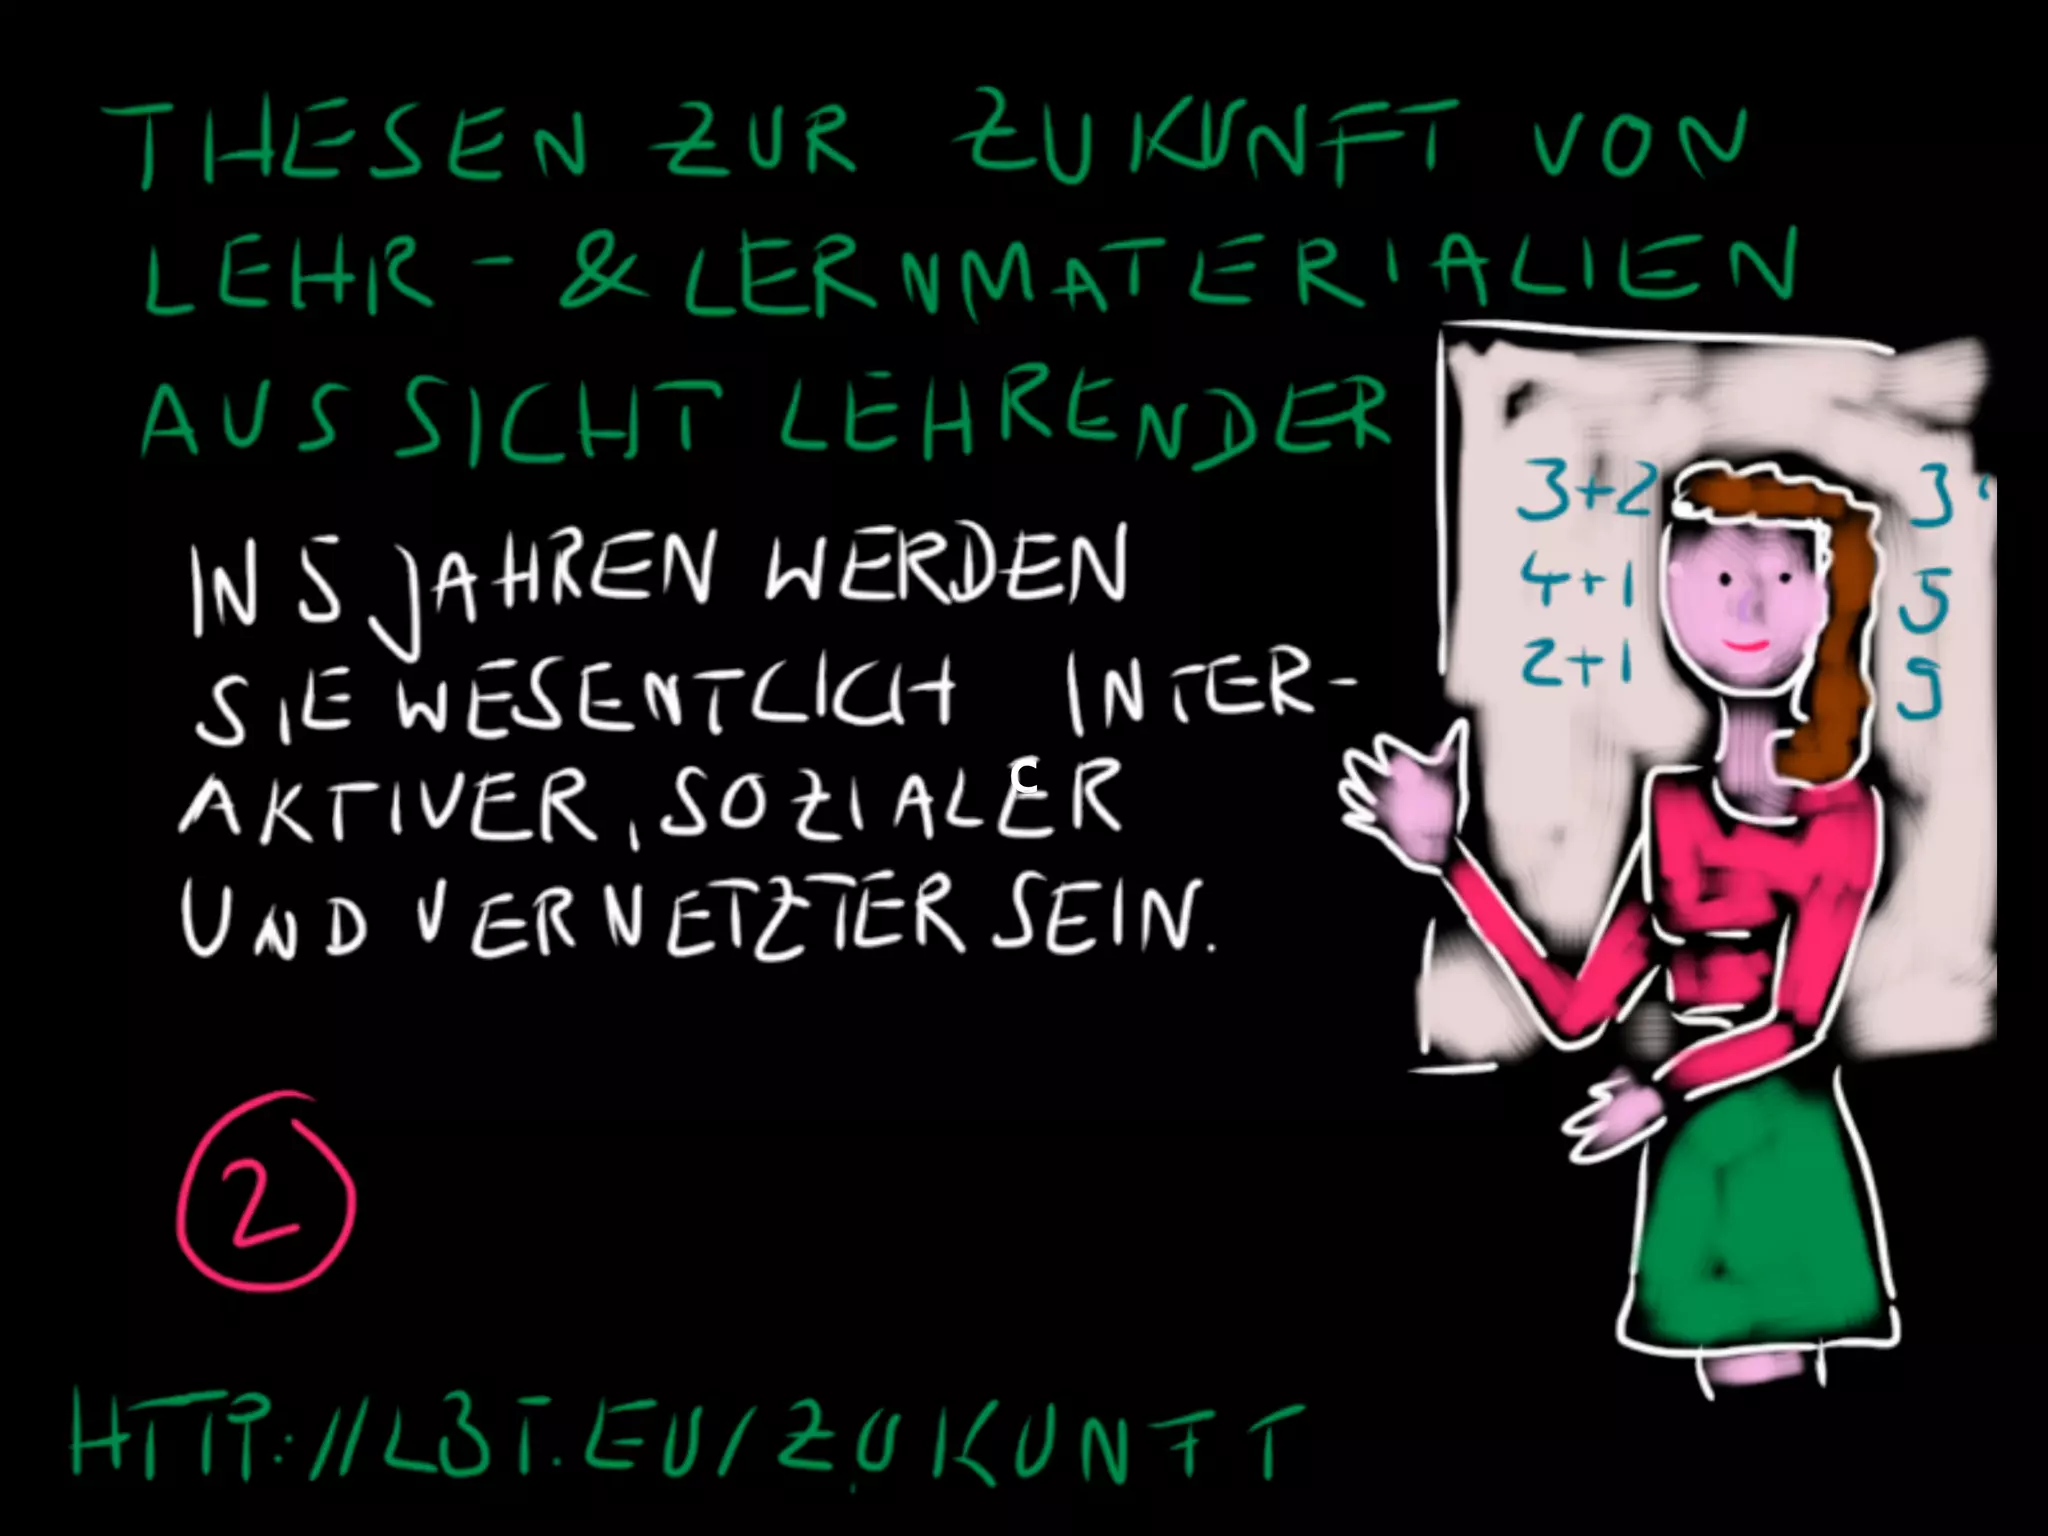 THESEN ZUR ZUKUNFT VON
LEHR- & LERNMATERIALIEN
AUS SICHT LEHRENDER
IN 5 JAHREN WERDEN
SIE WESENTLICH INTER-
AKTIVER, SOZIALER
C
UND VERNETZTER SEIN.
3+2
4+1
2+1
3
5
9
2
HTTP://L3T.EU/ZUKUNFT